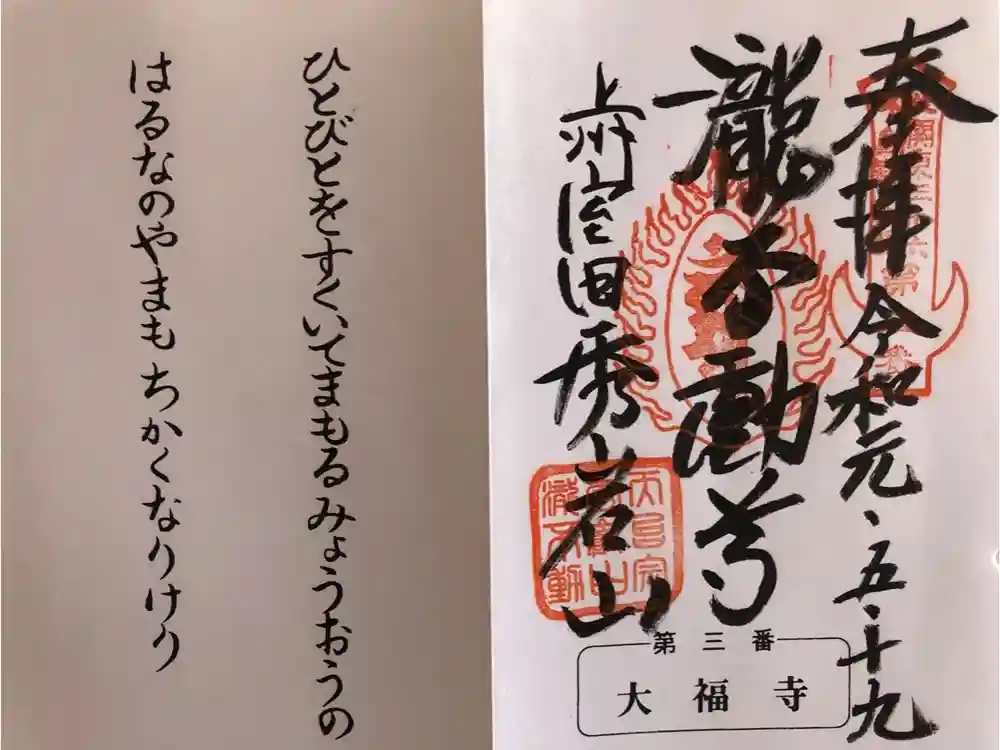 奉拝 令和元、五、十九
瀧不動尊
上州室田 秀岩山
第三番
大福寺
ひとびとをすくいてまもるみょうおうの
はるなのやまもちかくなりけり